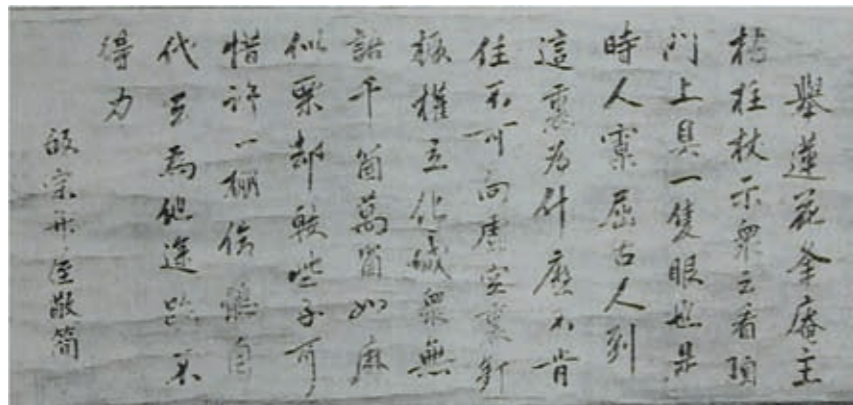 舉蓮花峯庵主
拈拄杖示衆云看頂
門上具一隻眼也是
時人窠屈古人到
這裏為什麼不肯
住不可向虛空裏釘
橛權立化城衆無
語千箇萬箇如麻
似粟却較些子可
惜許一棚俊鶻自
代云為他途路不
得力
宗敬簡